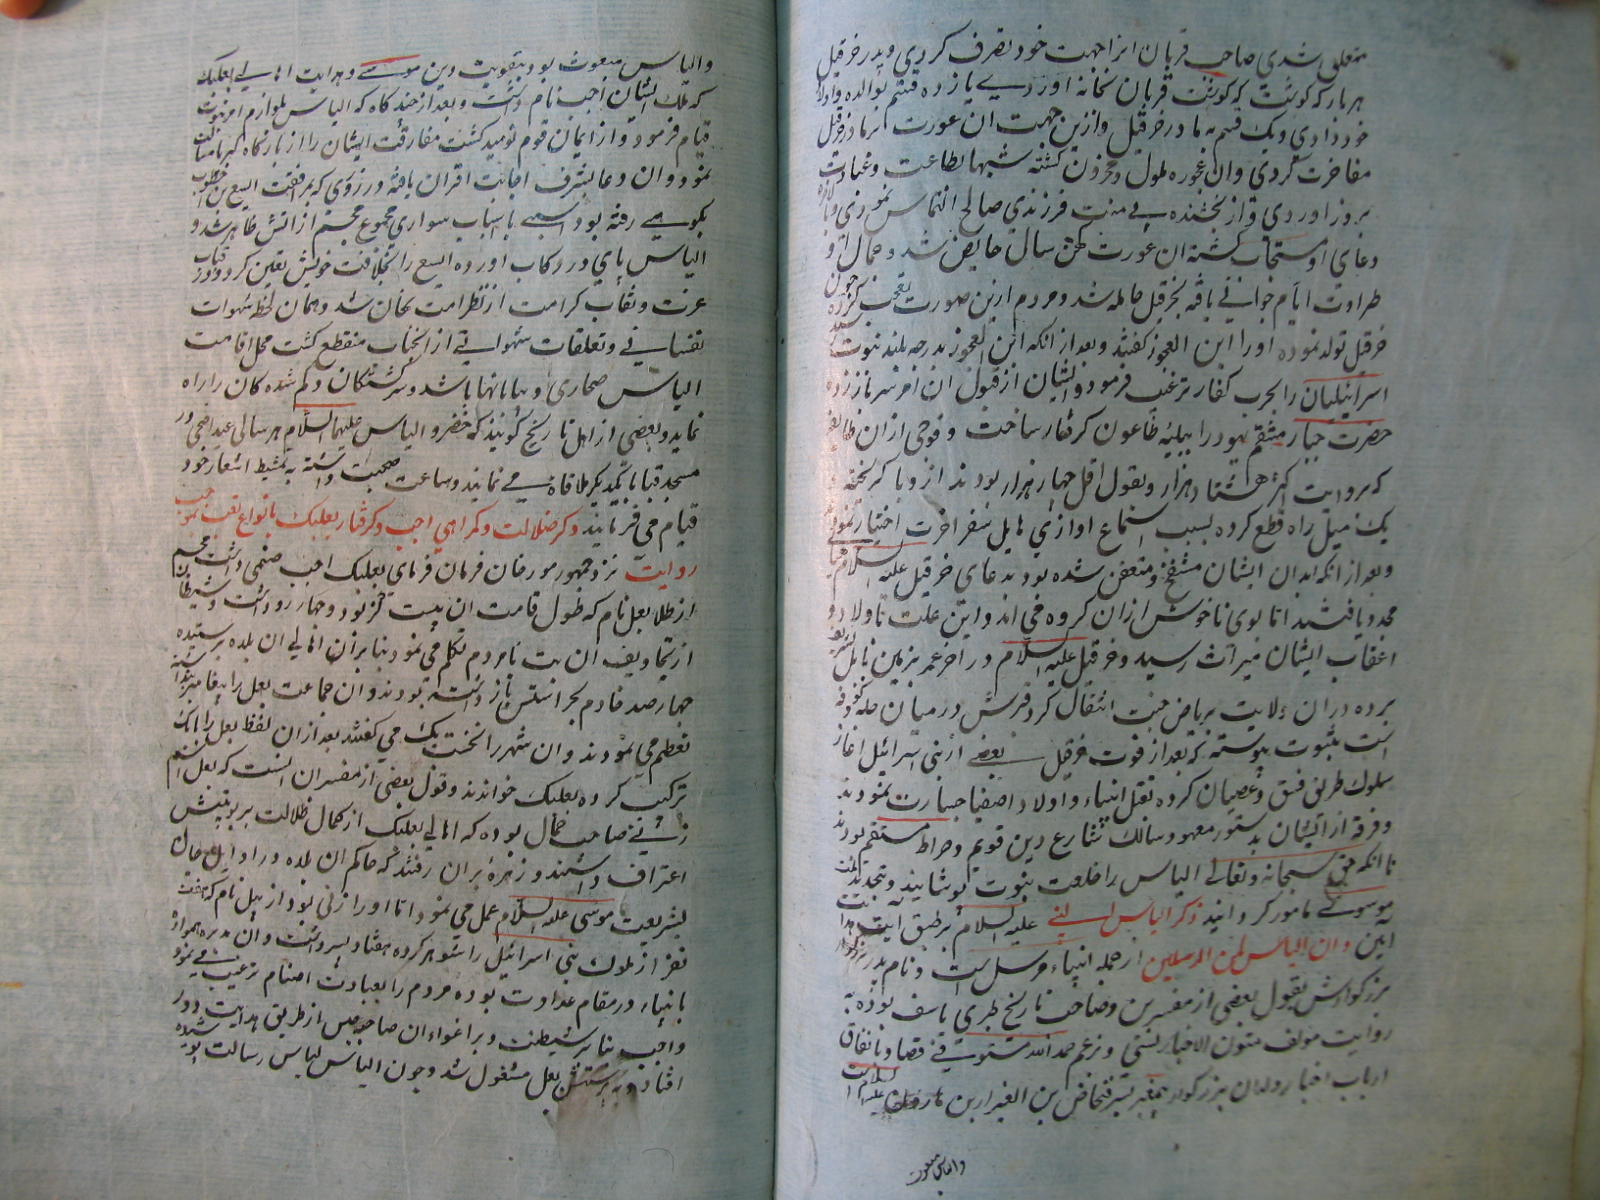 متعلق شدی صاحب قربان انرا جهت خود تصرف کردی و پدر خرقیل
هر بار که کوشت قربان بخانه اوردی یازده قسم بوالده و اولاد
خود دادی و یک قسم به مادر خرقیل و ازین جهت ان عورت بر مادر خرقیل
مفاخرت کردی وان عجوزه ملول و محزون کشته شبها بطاعت و عبادت
بروز اوردی و از بخشنده بی منت فرزندی صالح التماس نمودی
دعای او مستجاب کشته ان عورت کهن سال حایض شد و جمال او
طراوت ایام جوانی یافته بخرقیل حامله شد و مردم ازین صورت تعجب کرده چون
خرقیل تولد نموده اورا ابن العجوز کفتند و بعد از انکه ابن العجوز بدرجه بلند نبوت رسید
اسرائیلیان را بحرب کفار ترغیب فرمود و ایشان از قبول ان امر سر باز زده
حضرت جبار منتقم یهود را ببلیه طاعون کرفتار ساخت و فوجی ازان طایفه
که بروایت اکثر هشتاد هزار و بقول اقل چهار هزار بودند از وبا کریخته و
یک میل راه قطع کرده بسبب استماع اوازی هایل سفر اخرت اختیار نمودند
و بعد از انکه ابدان ایشان متفسخ و متعفن شده بود بدعای خرقیل علیه السلام حیات
مجدد یافتند اما بوی ناخوش ازان کروه می امد و این علت تا اولاد و
اعقاب ایشان میراث رسید و خرقیل علیه السلام در اخر عمر بزمین بابل تشریف
برده دران ولایت بریاض جنت انتقال کرد قبرش در میان حله و کوفه
است بثبوت پیوسته که بعد از فوت خرقیل بعضی از بنی اسرائیل اغاز
سلوک طریق فسق و عصیان کرده بقتل انبیاء و اولاد اصفیا جسارت نمودند
و فرقه از ایشان بدستور معهود سالک شارع دین قویم و صراط مستقیم بودند
تا انکه حق سبحانه و تعالی الیاس را خلعت نبوت پوشانیده بتجدید ملت
موسوی مامور کردانید ذکر الیاس النبی علیه السلام بر طبق ایت هدایت
ایین وان الیاس لمن المرسلین از جمله انبیاء مرسل است و نام پدر
بزرکوارش بقول بعضی از مفسرین و صاحب تاریخ طبری یاسف بوده به
روایت مولف متون الاخبار و بزعم حمد الله مستوفی و باتفاق
ارباب اخبار پدر بزرکوار پیغمبر فنحاص بن العیزار بن هارون علیه السلام
والیاس مبعوث
والیاس مبعوث بود بتقویت دین موسی و هدایت اهالی بعلبک
که ملک ایشان اجب نام داشت و بعد از چند کاه که الیاس بلوازم امر نبوت
قیام فرمود و از ایمان قوم نومید کشت مفارقت ایشان را از بارکاه کبریا مسالت
نمود وان دعا بشرف اجابت اقتران یافته و روزی که بمرافقت الیسع بن اخطوب
بکوهی رفته بود اسبی با اسباب سواری مجموع مجسم از اتش ظاهر شد و
الیاس پای در رکاب اورده الیسع را بخلافت خویش تعین کرد و در قباب
عزت و نقاب کرامت از نظر امت نهان شد و همان لحظه شهوات
نفسانی و تعلقات شهوانی از انجناب منقطع کشت محل اقامت
الیاس صحاری و بیابانها باشد و سرکشتکان و کم شده کان را راه
نماید و بعضی از اهل تاریخ کویند که خضر و الیاس علیهما السلام هر سالی عید اضحی در
مسجد قبا با یکدیکر ملاقاة می نمایند و ساعت صحبت داشته به تمشیط اشعار خود
قیام می فرمایند ذکر ضلالت و کمراهی اجب و کرفتار بعلبک بانواع تعب
روایت نزد جمهور مورخان فرمان فرمای بعلبک اجب صنمی داشت مجسم
از طلا بعل نام که طول قامت ان بیست کز بود و چهار رو داشت و شیطان
از تجاویف ان بت با مردم تکلم می نمود بنا بران اهالی ان بلده پرستیده
چهار صد خادم بحراستش باز داشته بودند وان جماعت بعل را پیغامبر
تعظیم می نمودند وان شهر را نخست بک می کفتند بعد ازان لفظ بعل را با بک
ترکیب کرده بعلبک خواندند و قول بعضی از مفسران انست که بعل اسم
زنی صاحب جمال بوده که اهالی بعلبک از کمال ضلالت بربوبیتش
اعتراف داشتند و زمره بران رفتند که حاکم ان بلده در اوایل حال
بشریعت موسی علیه السلام عمل می نمود اما اورا زنی بود ازبیل نام که هفت
نفر از ملوک بنی اسرائیل را شوهر کرده هفتاد پسر داشت وان مدبره همواره
با انبیاء در مقام عداوت بوده مردم را بعبادت اصنام ترغیب می نمود
و اجب بنا بر شیطنت و بر اغواء ان صاحبه خبیث از طریق هدایت دور
افتاده به پرستش بعل مشغول شد و چون الیاس لباس رسالت پوشیده